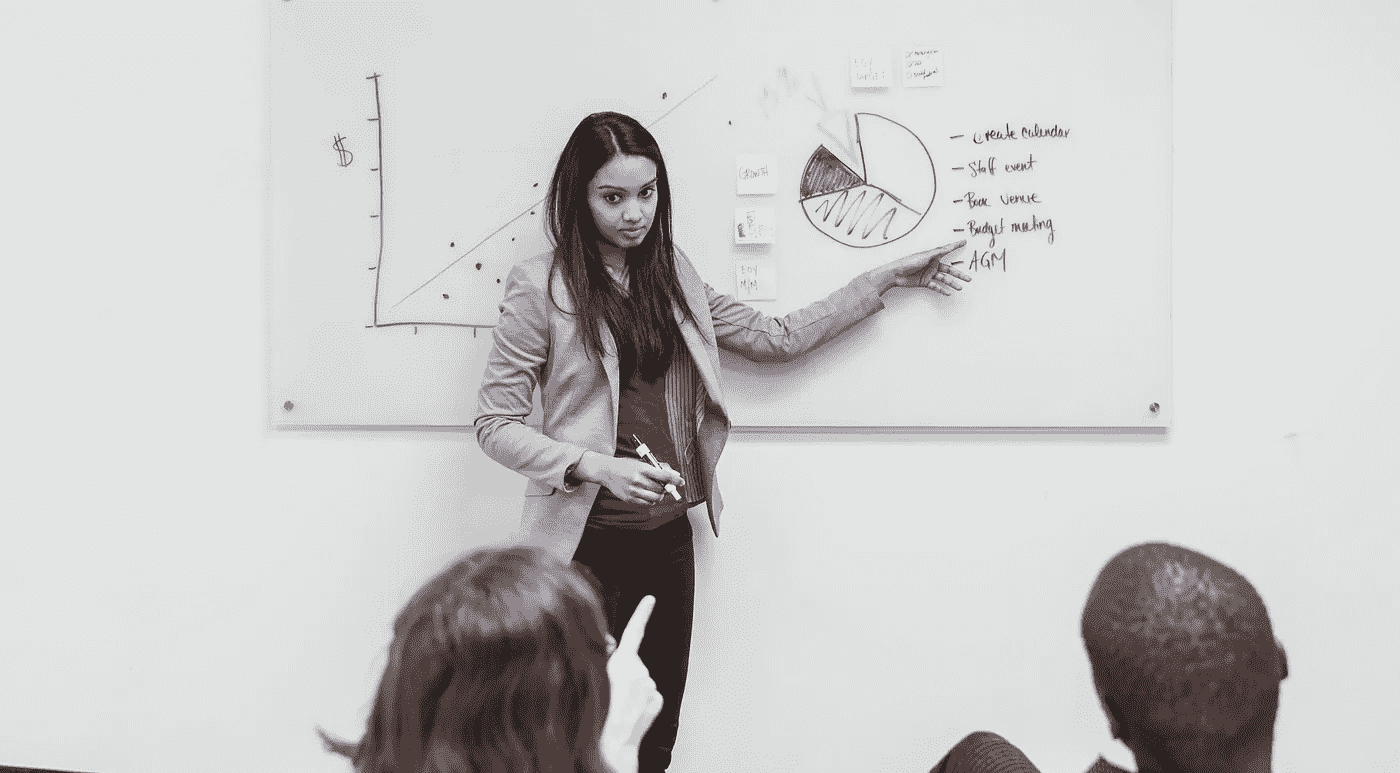 $
GROWTH
EOY
M/M
EOY
- Create calendar
- Staff event
- Book venue
- Budget meeting
- AGM